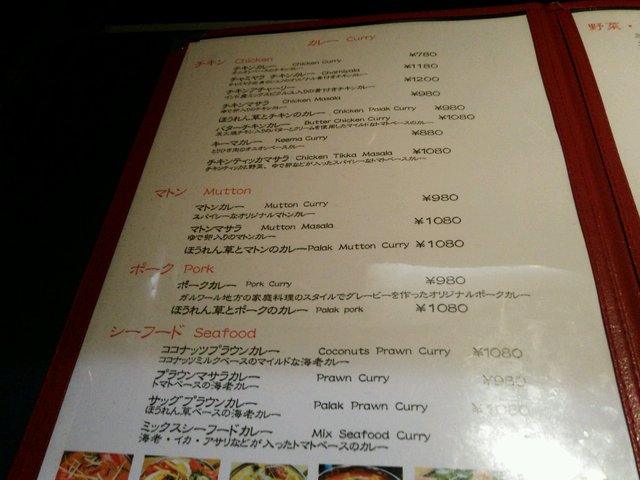 カレー Curry
チキン Chicken
チキンカレー Chicken Curry ¥780
チャミヤラ チキンカレー Chamiyala ¥1180
チキンアチャーリー ¥1200
チキンマサラ Chicken Masala ¥980
ゆで卵入りのチキンカレー
ほうれん草とチキンのカレー Chicken Palak Curry ¥980
バターチキンカレー Butter Chicken Curry ¥1080
キーマカレー Keema Curry ¥880
とりひき肉のオニオンベースカレー
チキンティッカマサラ Chicken Tikka Masala ¥1080
チキンティッカと野菜、ゆで卵などが入ったスパイシーなトマトベースカレー
マトン Mutton
マトンカレー Mutton Curry ¥980
スパイシーなオリジナルマトンカレー
マトンマサラ Mutton Masala ¥1080
ゆで卵入りのマトンカレー
ほうれん草とマトンのカレー Palak Mutton Curry ¥1080
ポーク Pork
ポークカレー Pork Curry ¥980
ガルワール地方の家庭料理のスタイルでグレービーを作ったオリジナルポークカレー
ほうれん草とポークのカレー Palak pork ¥1080
シーフード Seafood
ココナッツプラウンカレー Coconuts Prawn Curry ¥1080
ココナッツミルクベースのマイルドな海老カレー
プラウンマサラカレー Prawn Curry ¥980
トマトベースの海老カレー
サッグプラウンカレー Palak Prawn Curry ¥1080
ほうれん草ベースの海老カレー
ミックスシーフードカレー Mix Seafood Curry
海老・イカ・アサリなどが入ったトマトベースのカレー
野菜・